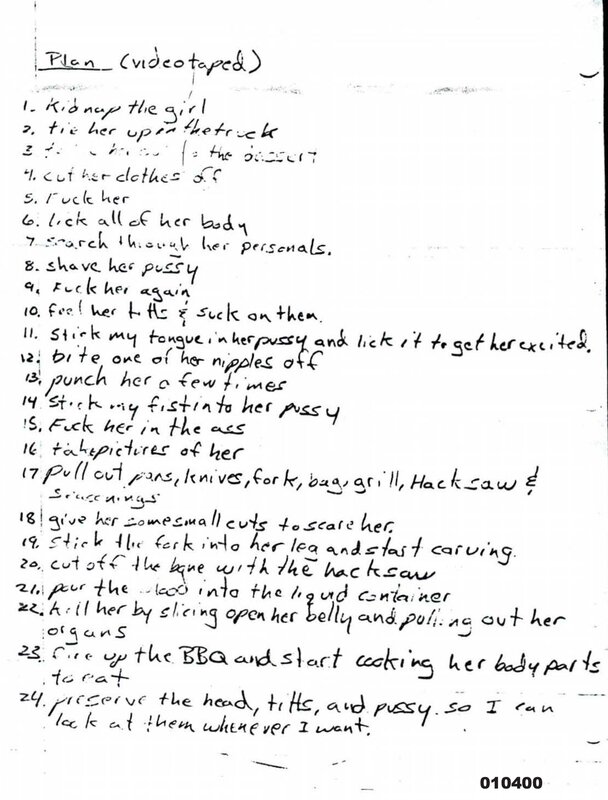 Plan (videotaped)
1. Kidnap the girl
2. tie her up in the truck
3 the dessert
4. cut her clothes off
5. Fuck her
6. lick all of her body
7. search through her personals.
8. shave her pussy
9. Fuck her again
10. feel her titts & suck on them.
11. Stick my tongue in her pussy and lick it to get her excited.
12. bite one of her nipples off
13. punch her a few times
14 stick my fist into her pussy
15. Fuck her in the ass
16 take pictures of her
17 Pull out pans, knives, fork, bag, grill, Hacksaw &
seasonings
18 give her some small cuts to scare her.
19. Stick the fork into her leg and start carving.
20. cut off the bone with the hacksaw
21. pour the blood into the liquid container
22. kill her by slicing open her belly and pulling out her
organs
23 fire up the BBQ and start cooking her body parts
to eat
24. preserve the head, titts, and pussy so I can
look at them whenever I want.
010400